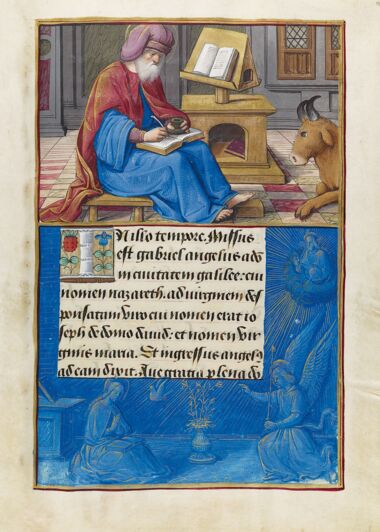 IN illo tempore. Missus
est gabriel angelus a deo
in ciuitatem galilee: cui
nomen nazareth. ad virginem des
ponsatam viro cui nomen erat io
seph de domo dauid: et nomen vir
ginis maria. Et ingressus angelꝰ
ad eam dixit. Aue gratia plena do